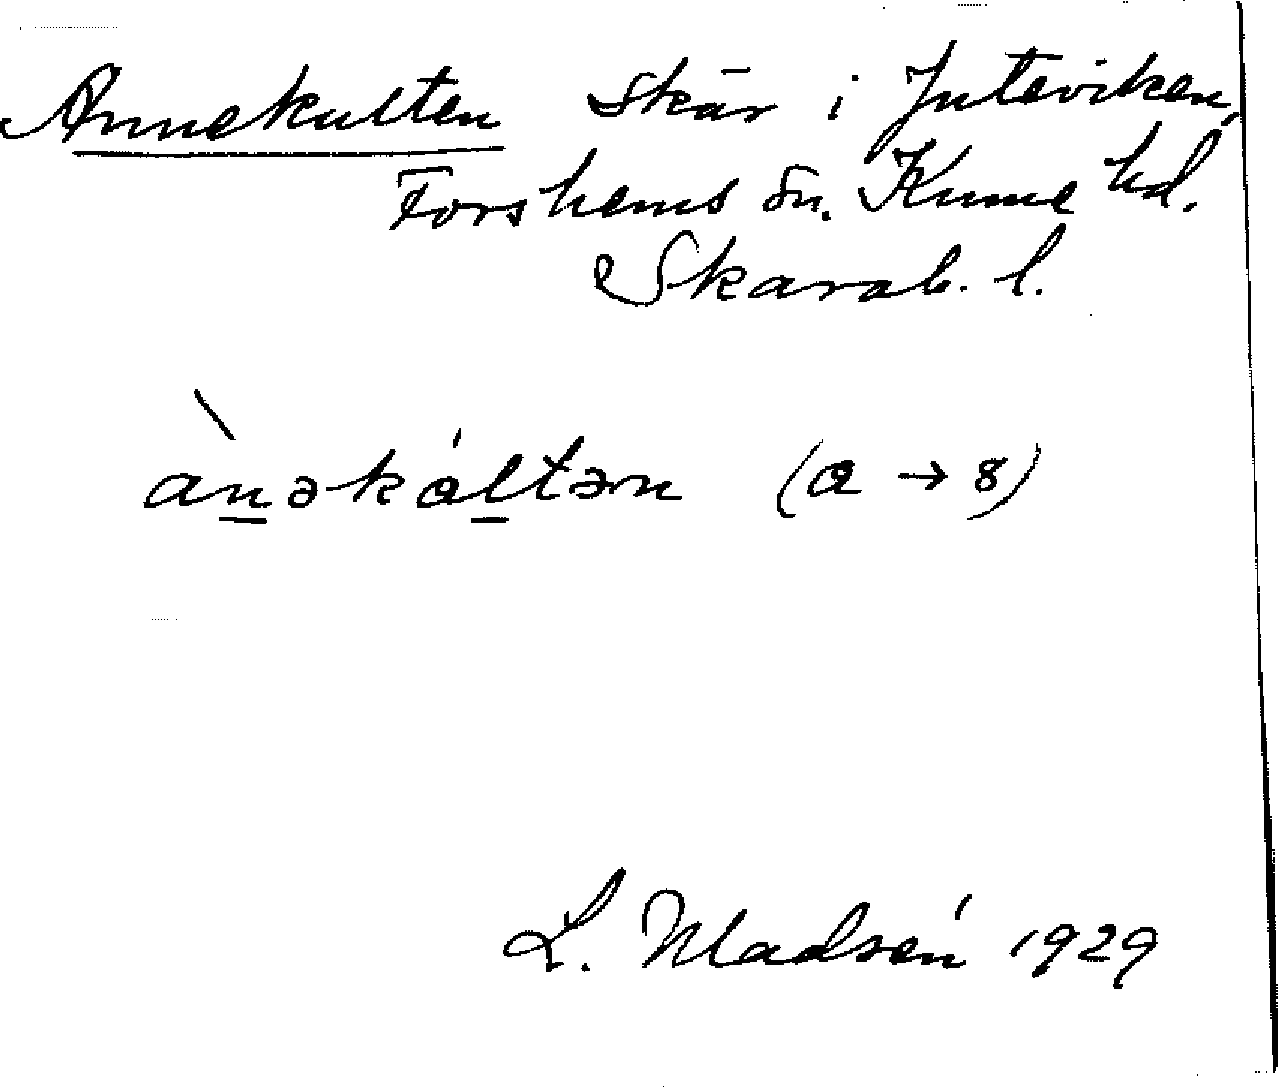 Annekulten skär i Juteviken,
Forshems sn. Kinne hd.
Skarab. l.
ànəkáltən (a → 8)
L. Madsén 1929